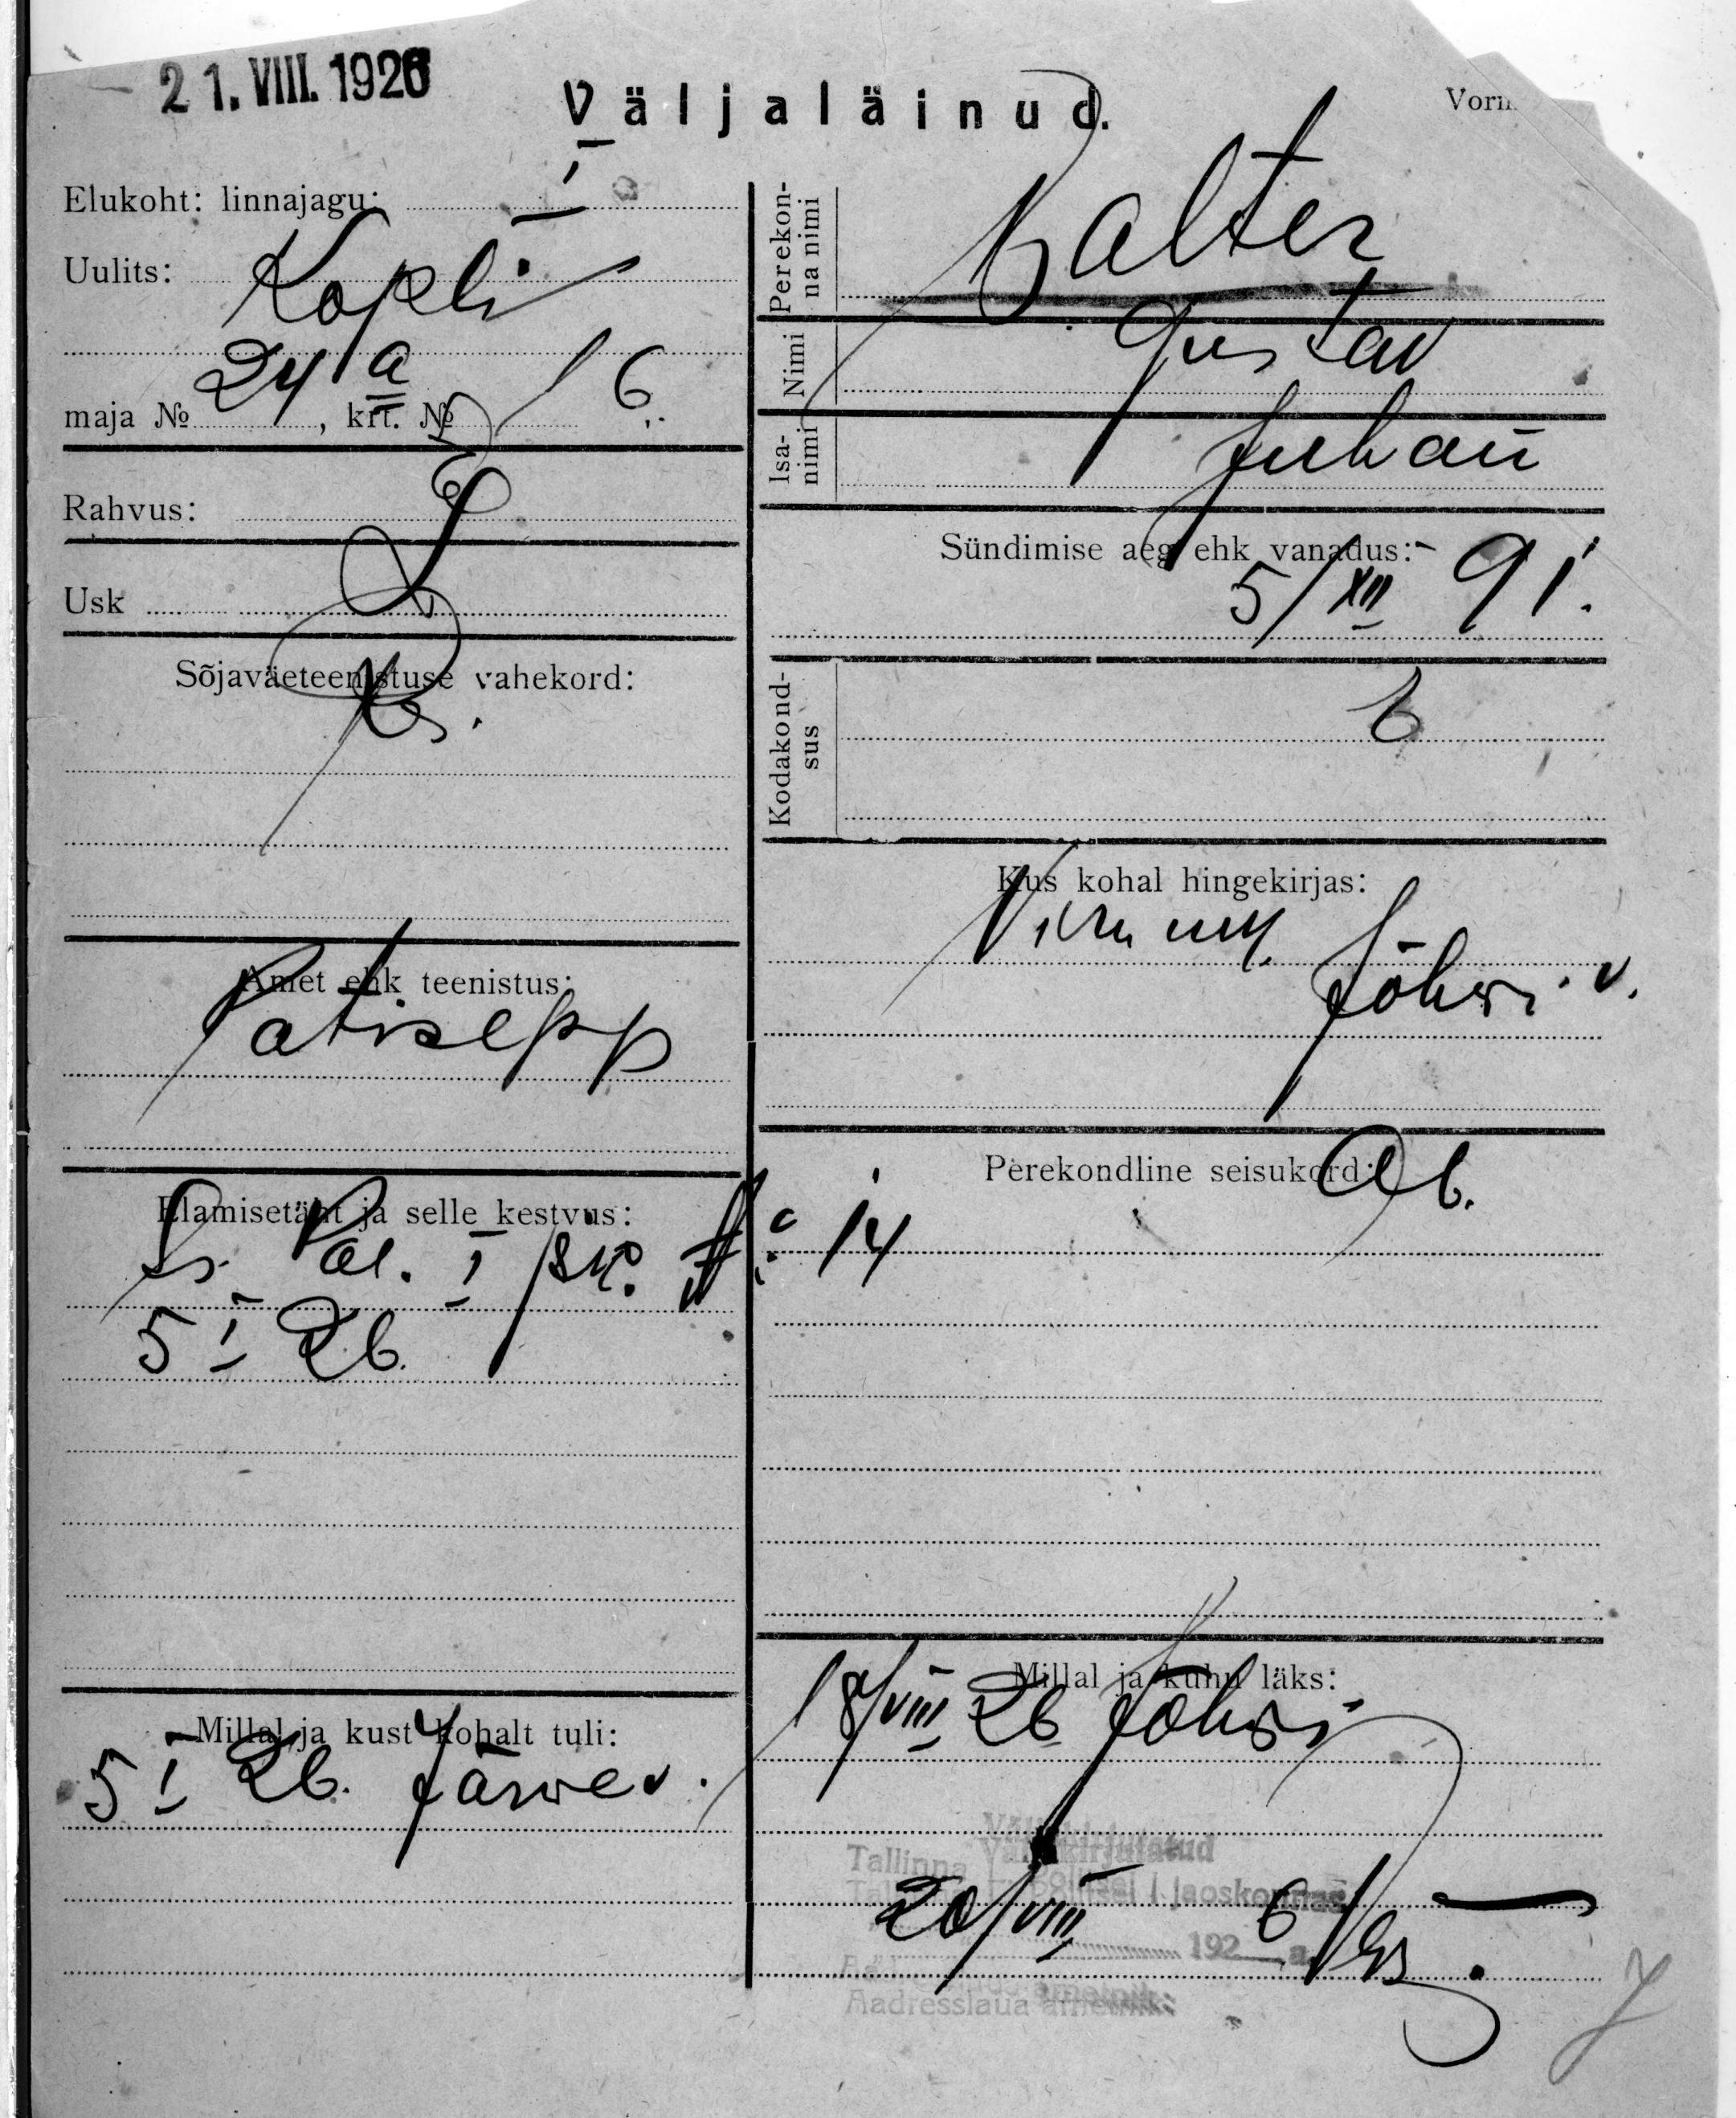 21. VIII. 1926
Väljaläinud.
Elukoht: linnajagu: I
Uulits: Kopli
maja № 24 a, krt. № 6.
Rahvus:
Usk L
Sõjaväeteenistuse vahekord:
Amet ehk teenistus:
Pätisepp
Elamisetäht ja selle kestvus:
I jsk. № 14
5 I 26.
Millal ja kust kohalt tuli:
5 I 26. Järve v.
Perekon-
na nimi
Kalter
Nimi Gustav
Isa-
nimi
Juhan
Sündimise aeg ehk vanadus:
5/XII 91.
Kodakond-
sus
Kus kohal hingekirjas:
Viru mk.
Jõhvi v.
Perekondline seisukord: Ab.
Millal ja kuhu läks:
18/VIII 26 Jõhvi
Väljakirjutatud
Tallinna Politsei I jaoskonnas
20/VIII 192 6 a.
Aadresslaua ametnik: